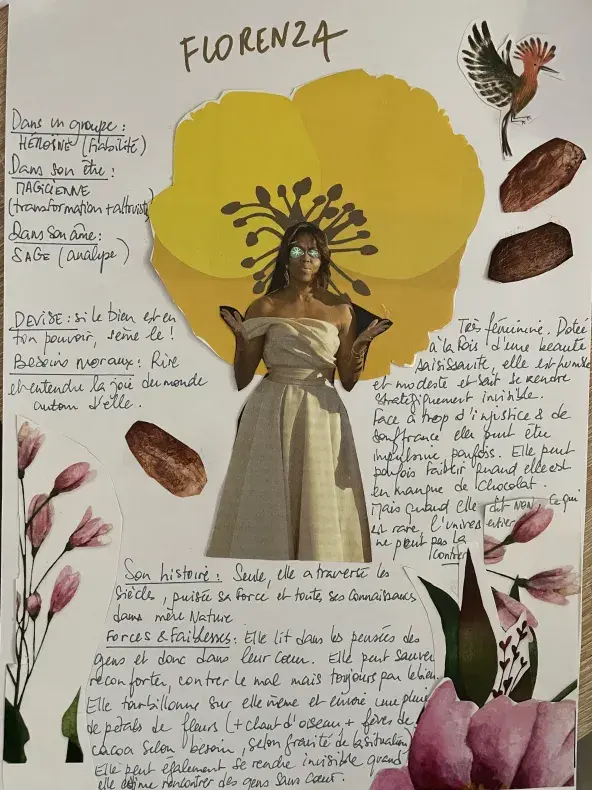 FLORENZA
Dans un groupe :
HÉROÏNE (fiabilité)
Dans son être :
MAGICIENNE
(transformation + altruiste)
Dans son âme :
SAGE (analyse)
DEVISE : si le bien est en
ton pouvoir, sème le !
Besoins moraux : Rire
et entendre la joie du monde
autour d'elle.
Très féminine. Dotée
à la fois d'une beauté
saisissante, elle est humble
et modeste et sait se rendre
stratégiquement invisible.
Face à trop d'injustice & de
souffrance elle peut être
impulsive parfois. Elle peut
parfois faiblir quand elle est
en manque de chocolat.
Mais quand elle dit NON, ce qui
est rare, l'univers entier
ne peut pas la
contrer
Son histoire : Seule, elle a traversé les
siècles, puisée sa force et toutes ses connaissances
dans mère Nature
Forces & Faiblesses : Elle lit dans les pensées des
gens et donc dans leur cœur. Elle peut sauver
réconforter, contrer le mal mais toujours par le bien.
Elle tourbillonne sur elle même et envoie une pluie
de pétals de fleurs (+ chant d'oiseau + fèves de
cacoa selon l'besoin, selon gravité de la situation)
Elle peut également se rendre invisible quand
elle estime rencontrer des gens sans cœur.